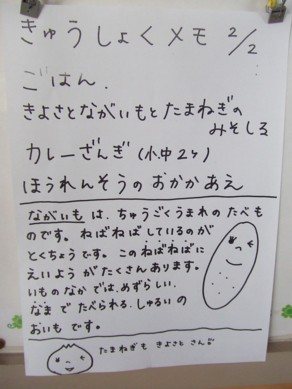 きゅうしょくメモ 2/2
ごはん.
きよさとながいもとたまねぎの
みそしる
カレーざんぎ(小中2ケ)
ほうれんそうのおかかあえ
ながいも は、ちゅうごくうまれ の たべも
のです。ねばねばしているのが
とくちょうです。この ねばねばに
えいよう がたくさん あります。
いものなか では、めずらしい、
なま で たべられる、しゅるい の
おいも です。
たまねぎも きよさと さん♪